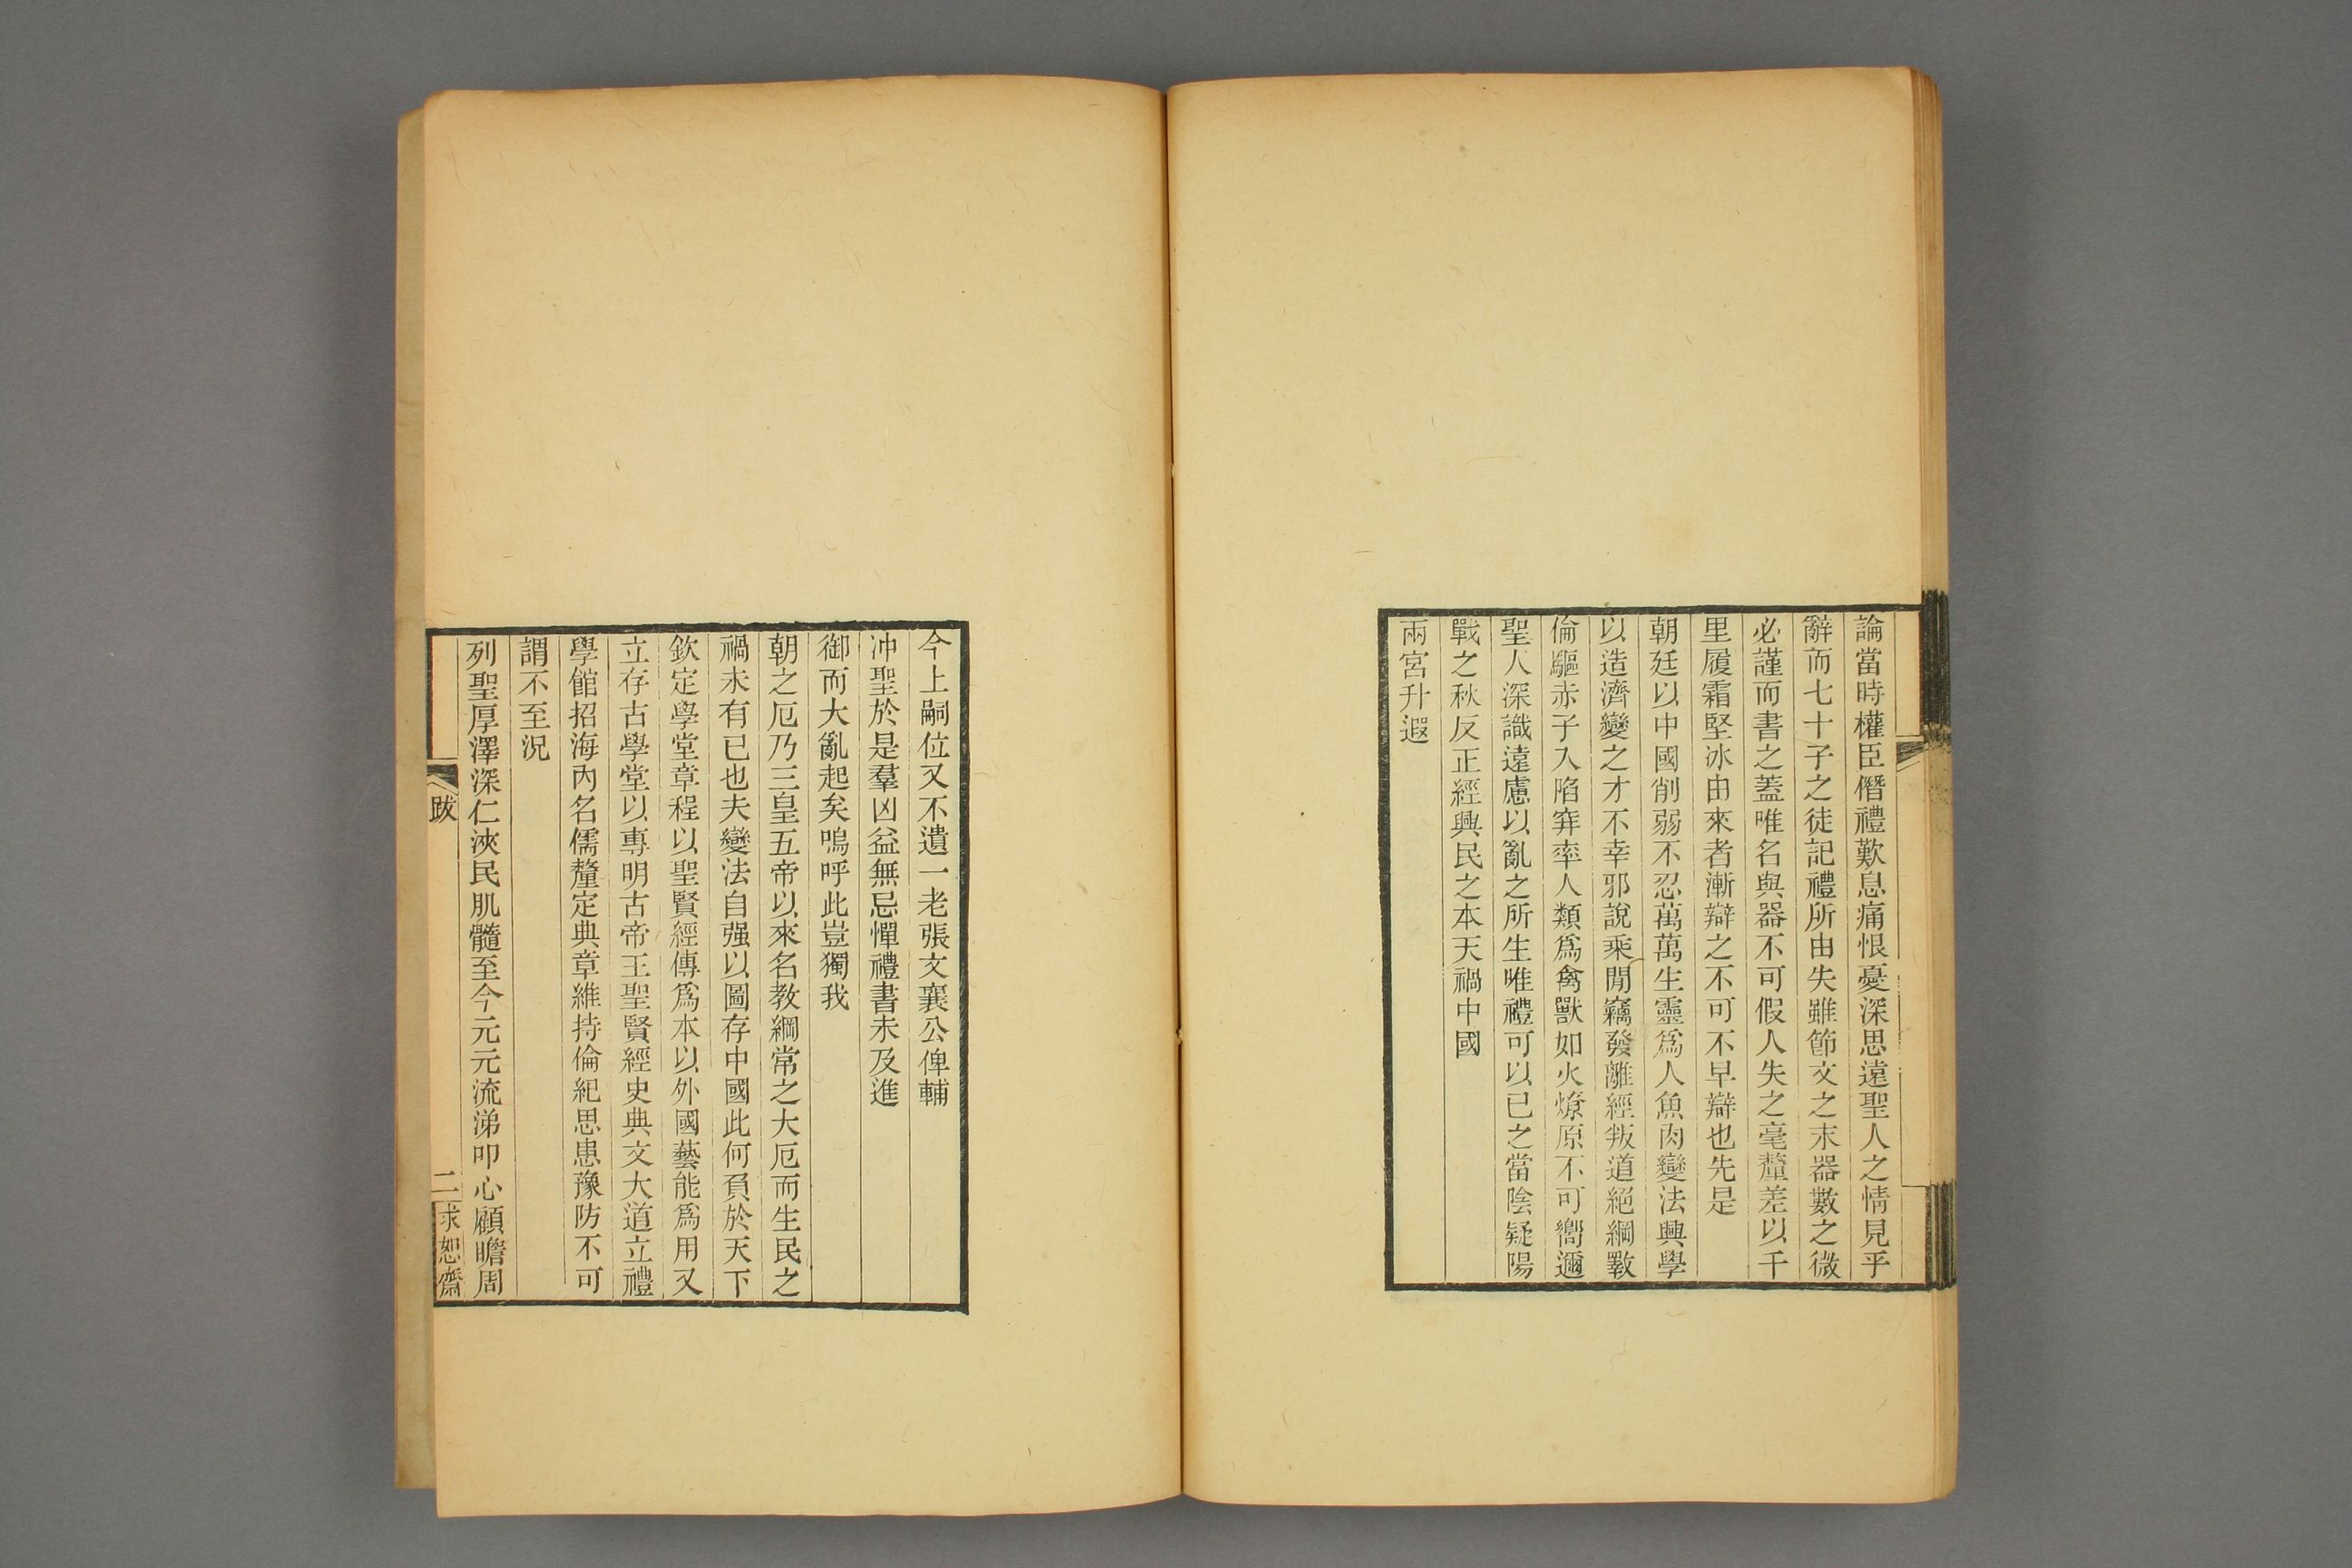 論當時權臣僭禮歎息痛恨憂深思遠聖人之情見乎
辭而七十子之徒記禮所由失雖節文之末器數之微
必謹而書之蓋唯名與器不可假人失之毫釐差以千
里履霜堅冰由來者漸辯之不可不早辯也先是
朝廷以中國削弱不忍萬萬生靈爲人魚肉變法興學
以造濟變之才不幸邪說乘閒竊發離經叛道絕綱斁
倫驅赤子入陷穽率人類爲禽獸如火燎原不可嚮邇
聖人深識遠慮以亂之所生唯禮可以已之當陰疑陽
戰之秋反正經興民之本天禍中國
兩宮升遐
今上嗣位又不遺一老張文襄公俾輔
沖聖於是羣凶益無忌憚禮書未及進
御而大亂起矣嗚呼此豈獨我
朝之厄乃三皇五帝以來名教綱常之大厄而生民之
禍未有已也夫變法自强以圖存中國此何負於天下
欽定學堂章程以聖賢經傳爲本以外國藝能爲用又
立存古學堂以專明古帝王聖賢經史典文大道立禮
學館招海內名儒釐定典章維持倫紀思患豫防不可
謂不至況
列聖厚澤深仁浹民肌髓至今元元流涕叩心顧瞻周
跋
二
求恕齋